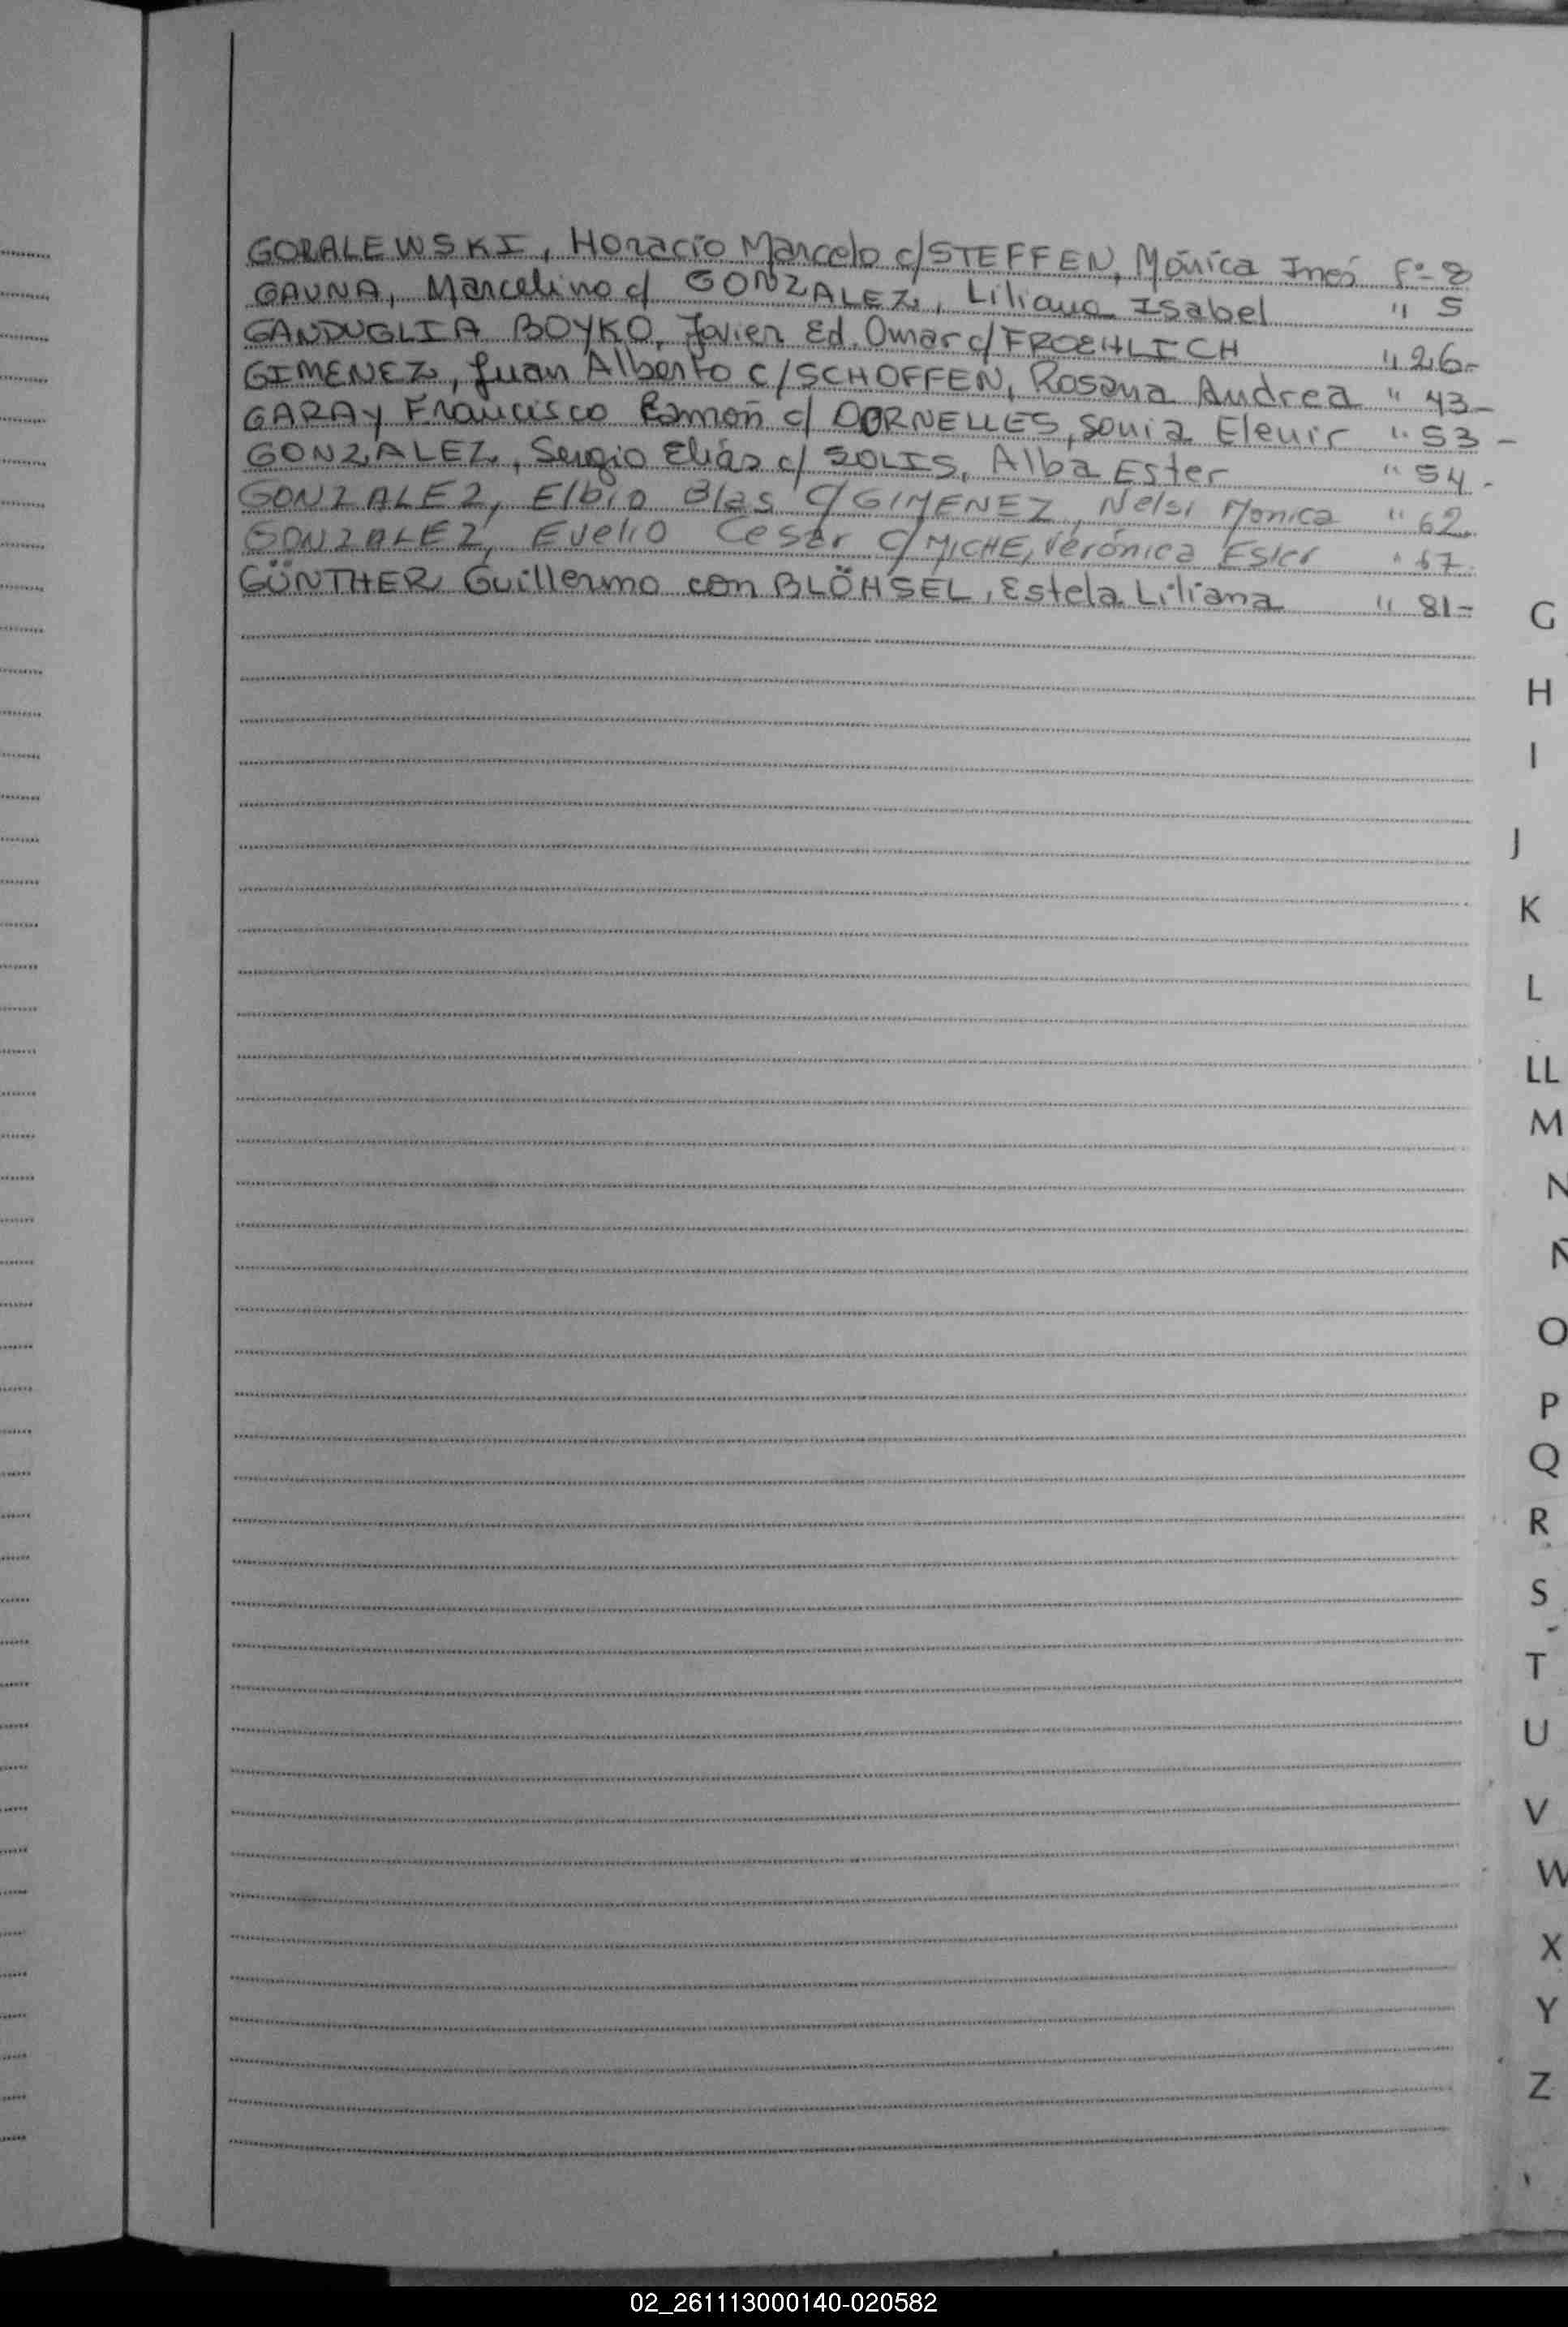 GORALEWSKI, Horacio Marcelo c/STEFFEN, Mónica Inés Fº 8
GAUNA, Marcelino c/ GONZALEZ, Liliana Isabel " 5
GANDUGLIA BOYKO, Javier Ed. Omar c/FROEHLICH " 26-
GIMENEZ, Juan Alberto c/SCHOFFEN, Rosana Andrea " 43-
GARAY Francisco Ramón c/ DORNELLES, Sonia Elenir " 53-
GONZALEZ, Sergio Elías c/ SOLIS, Alba Ester " 54-
GONZALEZ, Elbio Blas c/GIMENEZ, Nelsi Monica " 62
GONZALEZ, Evelio Cesar c/MICHE, Verónica Ester " 67
GÜNTHER Guillermo con BLÖHSEL, Estela Liliana " 81-
G
H
I
J
K
L
LL
M
N
Ñ
O
P
Q
R
S
T
U
V
W
X
Y
Z
02_261113000140-020582